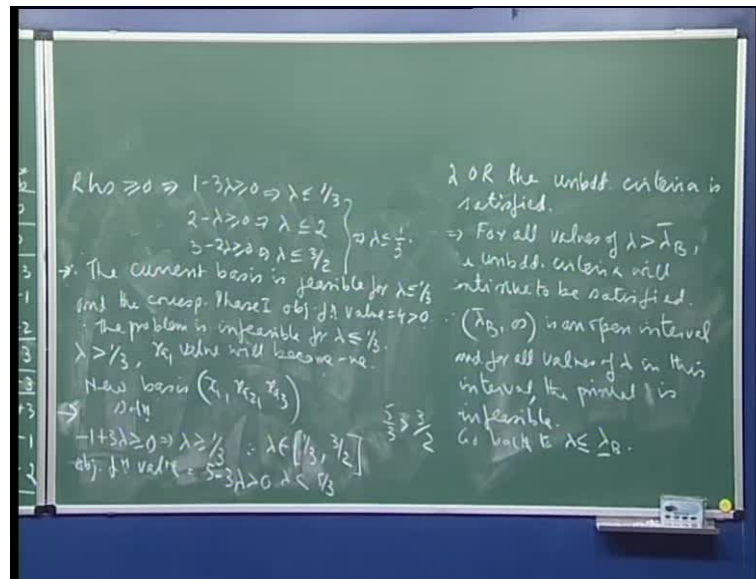 Rhs ≥0 ⇒ 1-3λ≥0 ⇒ λ ≤ 1/3
2-λ≥0 ⇒ λ ≤ 2
3-2λ≥0 ⇒ λ ≤ 3/2
⇒ λ ≤ 1/3.
⇒ ∴ The current basis is feasible for λ≤1/3
and the corresp. Phase I obj. fn value=4>0
∴ The problem is infeasible for λ ≤ 1/3.
λ > 1/3, value will become -ve.
New basis
soln
-1+3λ≥0 ⇒ λ ≥ 1/3 ∴ λ∈[1/3, 3/2]
obj. fn value = 5-3λ>0 λ < 5/3
5/3 > 3/2
2 OR the unbdd. criteria is
satisfied.
⇒ For all values of λ > λ̄_B,
unbdd. criteria will
continue to be satisfied.
∴ (λ̄_B, ∞) is an open interval
and for all values of λ in this
interval, the primal is
infeasible.
Go back to λ ≤ λ_B.
3
-1
-2
3
-3
+3
-1
-2